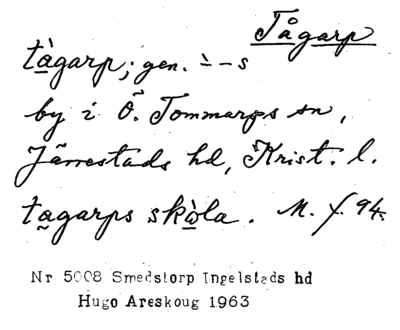 Tågarp
tàgarp; gen. ˋ–s
by i Ö. Tommarps sn,
Järrestads hd, Krist. l.
tagarps skòla. M. f. 94.
Nr 5008 Smedstorp Ingelstads hd
Hugo Areskoug 1963